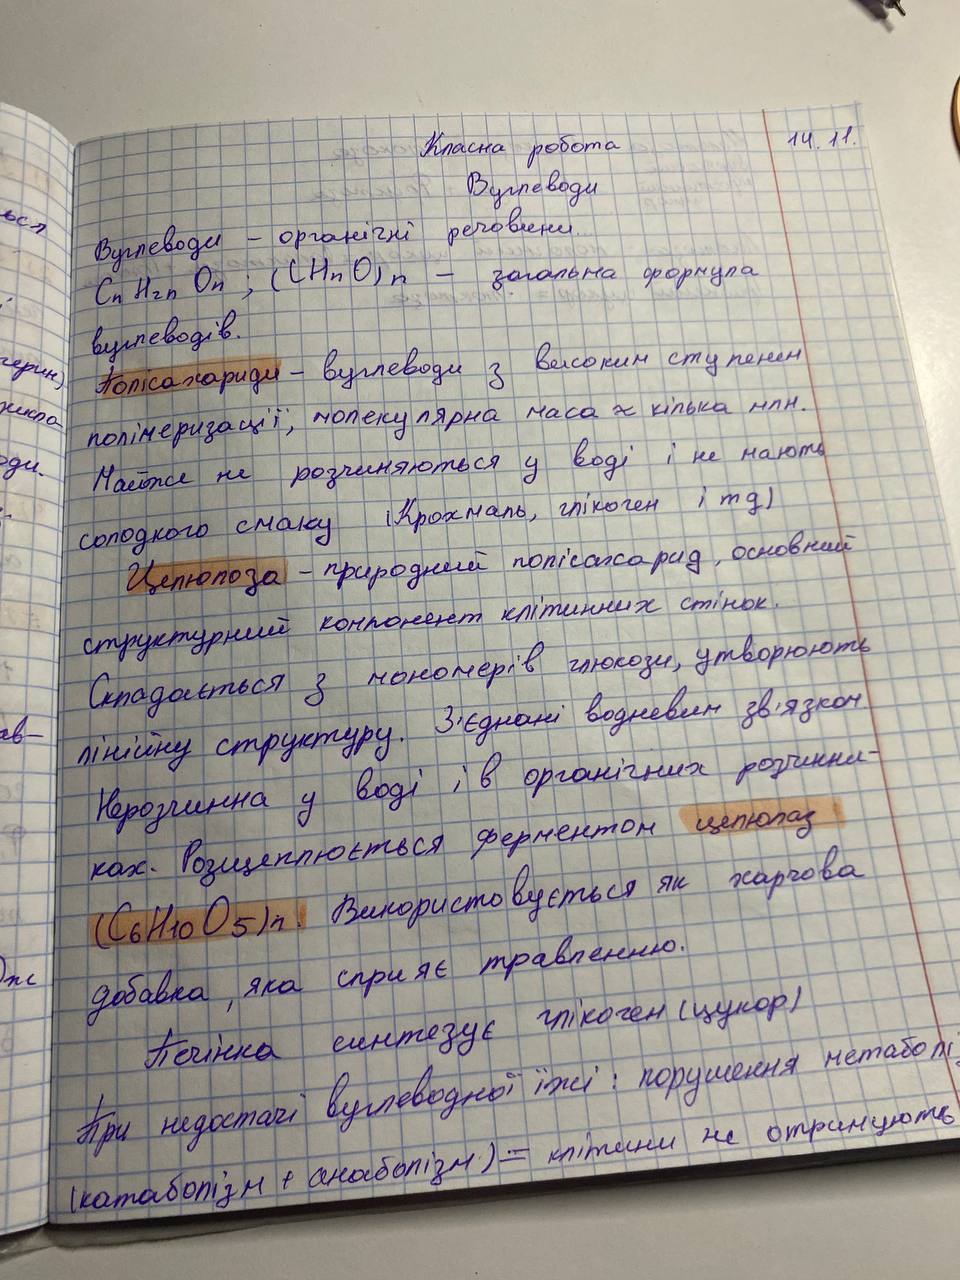 Класна робота 14.11.
Вуглеводи
Вуглеводи – органічні речовини...
CnH2nOn ; (CHnO)n – загальна формула
вуглеводів.
Полісахариди – вуглеводи з високим ступенем
полімеризації, молекулярна маса ≈ кілька млн.
Майже не розчиняються у воді і не мають
солодкого смаку (Крохмаль, глікоген і тд)
Целюлоза – природний полісахарид, основний
структурний компонент клітинних стінок.
Складається з мономерів глюкози, утворюють
лінійну структуру. З'єднані водневим зв'язком
Нерозчинна у воді і в органічних розчинни-
ках. Розщеплюється ферментом целюлаз
(C6H10O5)n. Використовується як харчова
добавка, яка сприяє травленню.
Печінка синтезує глікоген (цукор)
При недостачі вуглеводної їжі: порушення метаболі
(катаболізм + анаболізм) = клітини не отримують